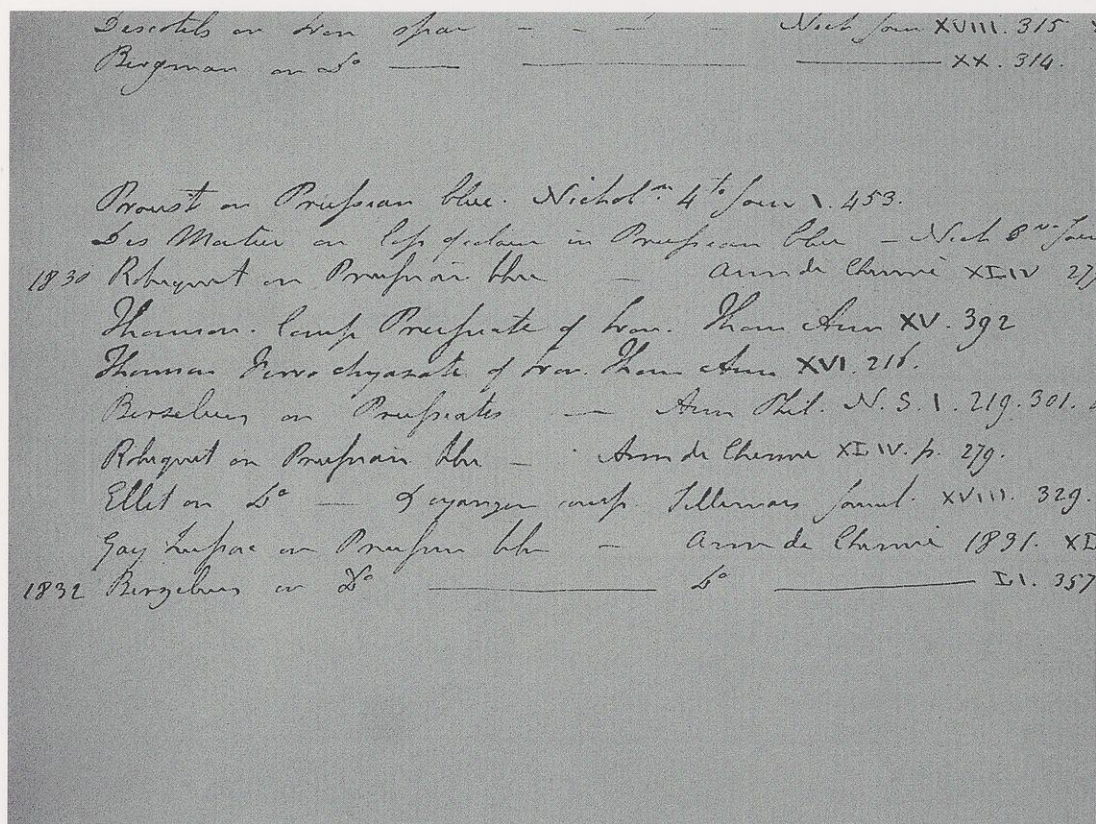 Descotils on Iron spar - - - - Nich Jour XVIII. 315
Bergman on Do — — — XX. 314.
Proust on Prussian blue. Nicholn. 4to Jour I. 453.
Des Mortier on loss of colour in Prussian blue - Nich 8vo Jour
1830 Robiquet on Prussian blue - Ann de Chemie XLIV 27
Thomson. Comp Prussiate of Iron. Thom Ann XV. 392
Thomson Ferro chyazate of Iron. Thom Ann XVI. 216.
Berzelius on Prussiates — Ann Phil. N. S. I. 219. 301.
Robiquet on Prussian blue - Ann de Chemie XLIV. p. 279.
Ellet on Do — & cyanogen comp. Sillimans Journal. XVIII. 329.
Gay Lussac on Prussian blue - Ann de Chemie 1831. XL
1832 Berzelius on Do — Do — LI. 357